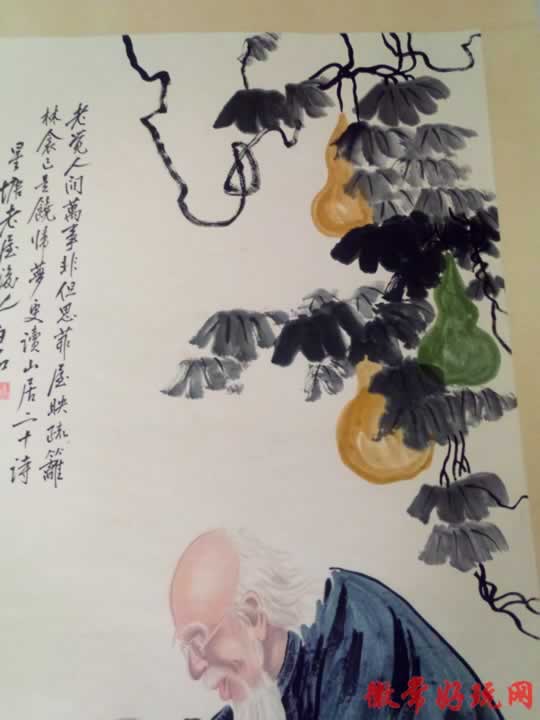 老觉人间萬事非但思茆屋映疏籬
林食已是饒情夢更讀山居二十诗
星塘老屋後人白石
徽常好玩网